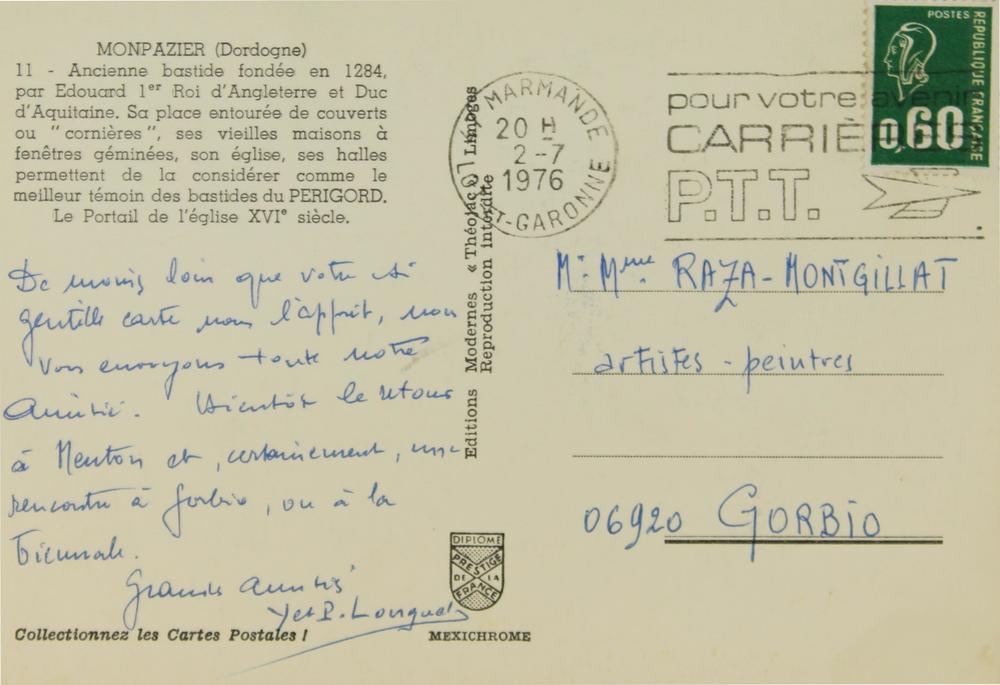 MONPAZIER (Dordogne)
11 - Ancienne bastide fondée en 1284,
par Edouard 1er Roi d'Angleterre et Duc
d'Aquitaine. Sa place entourée de couverts
ou "cornières", ses vieilles maisons à
fenêtres géminées, son église, ses halles
permettent de la considérer comme le
meilleur témoin des bastides du PERIGORD.
Le Portail de l'église XVIe siècle.
De moins loin que votre si
gentille carte nous l'apprit, nous
vous envoyons toute notre
amitié. Bientôt le retour
à Menton et, certainement, une
rencontre à Gorbio, ou à la
Biennale.
Grande amitié
Collectionnez les Cartes Postales !
Editions Modernes « Théojac » Limoges
Reproduction interdite
DIPLOME
PRESTIGE
DE LA
FRANCE
MEXICHROME
MARMANDE
20 H
2-7
1976
LOT-ET-GARONNE
pour votre avenir
CARRIÈRES
P.T.T.
POSTES
REPUBLIQUE FRANÇAISE
0,60
Mr Mme RAZA-MONTGILLAT
artistes - peintres
06920 GORBIO